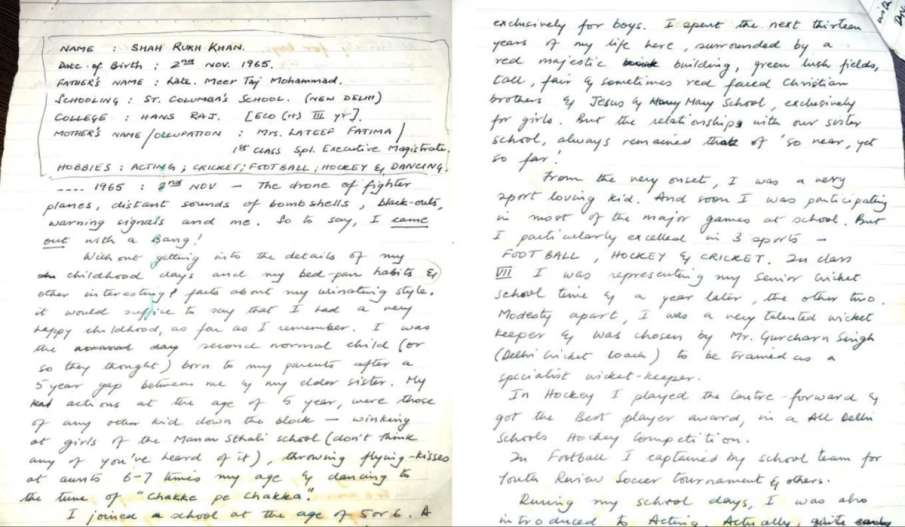 NAME : SHAH RUKH KHAN.
Date of Birth : 2nd NOV. 1965.
FATHER'S NAME : Late. Meer Taj Mohammad.
SCHOOLING : ST. COLUMBA'S SCHOOL. (NEW DELHI)
COLLEGE : HANS RAJ. [ECO (H) III yr].
MOTHER'S NAME/OCCUPATION : Mrs. LATEEF FATIMA /
1st CLASS Spl. Executive Magistrate.
HOBBIES : ACTING ; CRICKET ; FOOTBALL ; HOCKEY & DANCING.
.... 1965 : 2nd NOV – The drone of fighter
planes, distant sounds of bombshells, black-outs,
warning signals and me. So to say, I came
out with a Bang!
Without getting into the details of my
childhood days and my bed-pan habits &
other interesting facts about my urinating style,
it would suffice to say that I had a very
happy childhood, as far as I remember. I was
the second normal child (or
so they thought) born to my parents after a
5 year gap between me & my elder sister. My
actions at the age of 5 year, were those
of any other kid down the block – winking
at girls of the Manav Sthali school (don't think
any of you've heard of it), throwing flying-kisses
at aunts 6-7 times my age & dancing to
the tune of "Chakke pe Chakka."
I joined a school at the age of 5 or 6. A
exclusively for boys. I spent the next thirteen
years of my life here, surrounded by a
red majestic building, green lush fields,
tall, fair & sometimes red faced Christian
brothers & Jesus & Mary School, exclusively
for girls. But the relationship with our sister
school, always remained of 'so near, yet
so far'!
From the very onset, I was a very
sport loving kid. And soon I was participating
in most of the major games at school. But
I particularly excelled in 3 sports –
FOOTBALL, HOCKEY & CRICKET. In class
VII I was representing my Senior Cricket
school time & a year later, the other two.
Modesty apart, I was a very talented wicket
keeper & was chosen by Mr. Gurcharn Singh
(Delhi Cricket Coach) to be trained as a
specialist wicket-keeper.
In Hockey I played the Centre-forward &
got the Best player award, in a All Delhi
Schools Hockey Competition.
In Football I captained by school team for
Youth Soccer tournament & others.
During my school days, I was also
introduced to Acting. Actually, quite
with